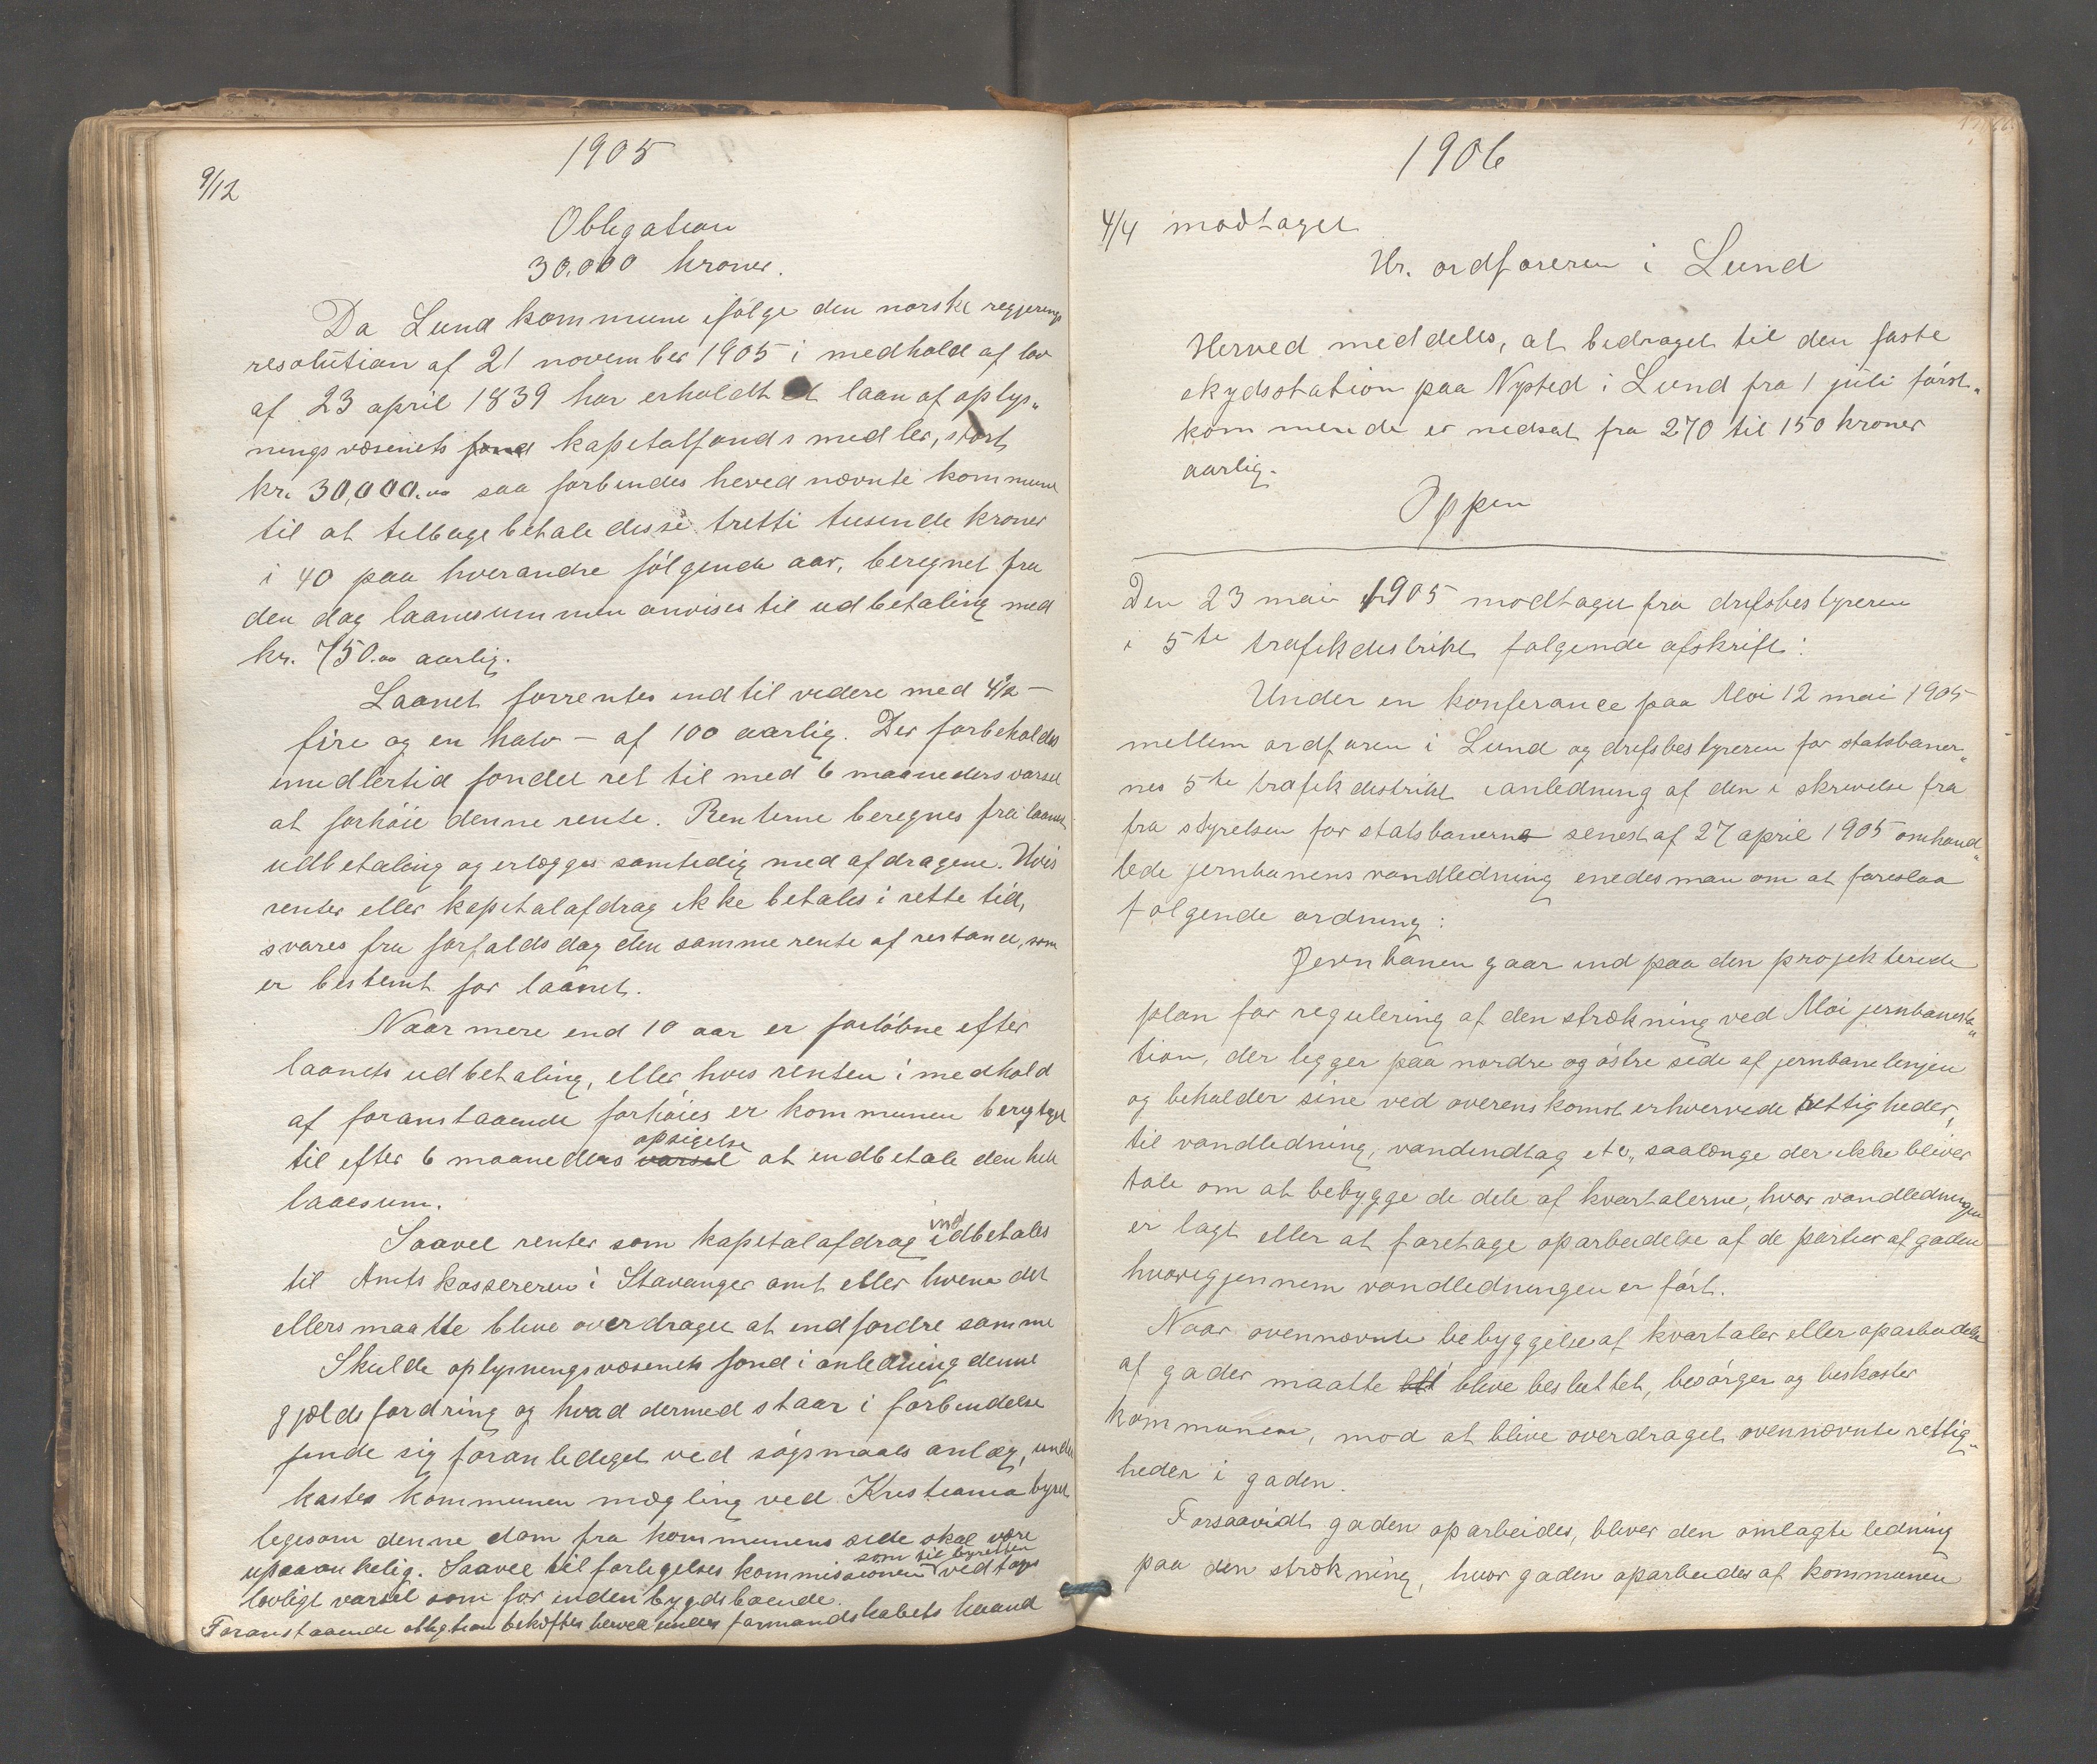 1905
9/12
Obligation
30.000 kroner.
Da Lund kommune ifølge den norske regjerings
resolution af 21 november 1905 i medhold af lov
af 23 april 1839 har erholdt et laan af oplys„
ningsvæsenets fond kapitalfonds midler, stort
kr. 30,000.00 saa forbindes herved nævnte kommune
til at tilbagebetale disse tretti tusende kroner
i 40 paa hverandre følgende aar, beregnet fra
den dag laanesummen anvises til udbetaling med
kr. 750.00 aarlig.
Laanet forrentes indtil videre med 4½ –
fire og en halv – af 100 aarlig. Der forbeholdes
imidlertid fondet ret til med 6 maaneders varsel
at forhøie denne rente. Renterne beregnes fra laanets
udbetaling og erlægges samtidig med afdragene. Hvis
renter eller kapitalafdrag ikke betales i rette tid,
svares fra forfaldsdag den samme rente af restance, som
er bestemt for laanet.
Naar mere end 10 aar er forløbne efter
laanets udbetaling, eller hvis renten i medhold
af foranstaaende forhøies er kommunen berettiget
til efter 6 maaneders varsel opsigelse at indbetale den hele
laaesum.
Saavel renter som kapitalafdrag indbetales
til Amtskassereren i Stavanger amt eller hvem det
ellers maatte blive overdraget at indfordre samme
Skulde oplysningsvæsenets fond i anledning denne
gjældsfordring og hvad dermed staar i forbindelse
finde sig foranlediget ved søgsmaals anlæg, under
kastes kommunen mægling ved Kristiania byret
ligesom denne dom fra kommunens side skal være
upaaankelig. Saavel til forligelseskommissionen som til byretten vedtages
lovligt varsel som for indenbygdsboende.
Foranstaaende obligtion bekræftes herved under formandskabets haand
1906
4/4 modtaget
Hr. ordføreren i Lund
Herved meddeles, at bidraget til den faste
skydsstation paa Nysted i Lund fra 1 juli først„
kommende er nedsat fra 270 til 150 kroner
aarlig.
Oppen
Den 23 mai 1905 modtaget fra driftsbestyreren
i 5te trafikdistrikt følgende afskrift:
Under en konferance paa Moi 12 mai 1905
mellem ordføren i Lund og drifsbestyreren for statsbaner„
nes 5te trafikdistrikt i anledning af den i skrivelse fra
fra styrelsen for statsbanerne senest af 27 april 1905 omhand„
lede jernbanens vandledning enedes man om at foreslaa
følgende ordning:
Jernbanen gaar ind paa den projekterede
plan for regulering af den strækning ved Moi jernbanesta„
tion, der ligger paa nordre og østre side af jernbanelinjen
og beholder sine ved overenskomst erhvervede rettigheder,
til vandledning, vandindtag etc., saalænge der ikke bliver
tale om at bebygge de dele af kvartalerne, hvor vandledningen
er lagt eller at foretage oparbeidelse af de partier af gaden
hvorigjennem vandledningen er ført.
Naar ovennævnte bebyggelse af kvartaler eller oparbeidelse
af gader maatte blive besluttet, besørger og bekoster
kommunen, mod at blive overdraget ovennævnte rettig„
heder i gaden.
Forsaavidt gaden oparbeides, bliver den omlagte ledning
paa den strækning, hvor gaden oparbeides af kommunen